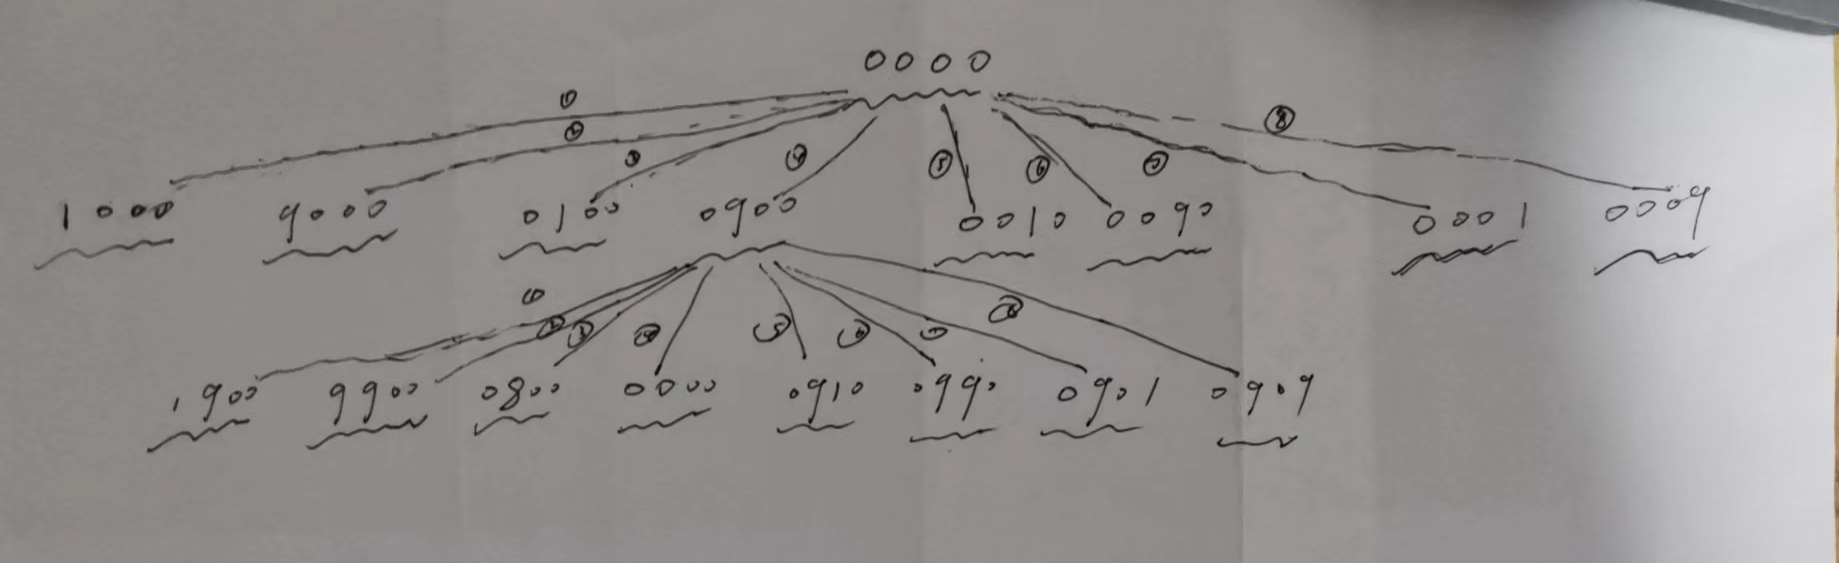 0000
① ② ③ ④ ⑤ ⑥ ⑦ ⑧
1000 9000 0100 0900 0010 0090 0001 0009
① ② ③ ④ ⑤ ⑥ ⑦ ⑧
1900 9900 0800 0000 0910 0990 0901 0909